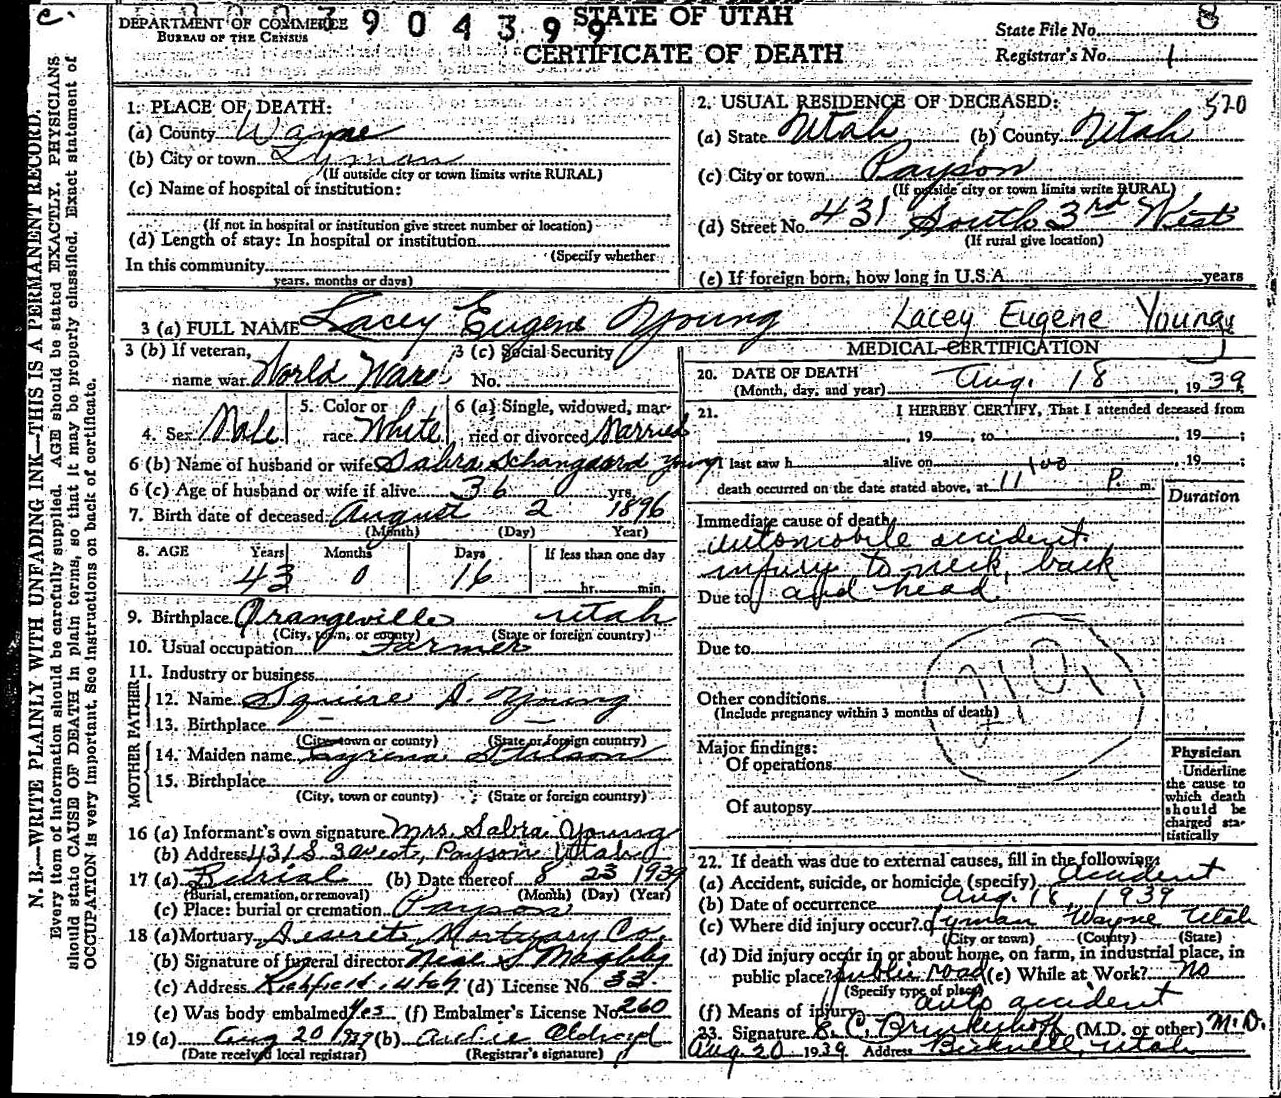 e.
DEPARTMENT OF COMMERCE
BUREAU OF THE CENSUS
390439 9
STATE OF UTAH
CERTIFICATE OF DEATH
State File No. 8
Registrar's No. 1
N. B.—WRITE PLAINLY WITH UNFADING INK—THIS IS A PERMANENT RECORD.
Every item of information should be carefully supplied. AGE should be stated EXACTLY. PHYSICIANS
should state CAUSE OF DEATH in plain terms, so that it may be properly classified. Exact statement of
OCCUPATION is very important. See instructions on back of certificate.
1. PLACE OF DEATH:
(a) County Wayne
(b) City or town Lyman
(If outside city or town limits write RURAL)
(c) Name of hospital or institution:
(If not in hospital or institution give street number or location)
(d) Length of stay: In hospital or institution
(Specify whether
In this community
years, months or days)
2. USUAL RESIDENCE OF DECEASED: 520
(a) State Utah (b) County Utah
(c) City or town Payson
(If outside city or town limits write RURAL)
(d) Street No. 431 South 3rd West
(If rural give location)
(e) If foreign born, how long in U.S.A. years
3 (a) FULL NAME Lacey Eugene Young Lacey Eugene Young
3 (b) If veteran,
name war World War
3 (c) Social Security
No.
4. Sex Male
5. Color or
race White
6 (a) Single, widowed, mar-
ried or divorced Married
6 (b) Name of husband or wife Sabra Young
6 (c) Age of husband or wife if alive 36 yrs.
7. Birth date of deceased August 2 1896
(Month) (Day) Year)
8. AGE Years Months Days If less than one day
43 0 16 hr. min.
9. Birthplace Orangeville Utah
(City, town, or county) (State or foreign country)
10. Usual occupation Farmer
11. Industry or business
FATHER
12. Name Squire D. Young
13. Birthplace — —
(City town or county) (State or foreign country)
MOTHER
14. Maiden name Stilson
15. Birthplace
(City, town or county) (State or foreign country)
16 (a) Informant's own signature Mrs. Sabra Young
(b) Address 431 S. 3 West, Payson Utah
17 (a) Burial (b) Date thereof 8 23 1939
(Burial, cremation, or removal) (Month) (Day) (Year)
(c) Place: burial or cremation Payson
18 (a) Mortuary Deseret Mortuary Co.
(b) Signature of funeral director Neal S Magleby
(c) Address Richfield, Utah (d) License No. 33
(e) Was body embalmed Yes (f) Embalmer's License No. 260
19 (a) Aug 20 1939 (b) Oldroyd
(Date received local registrar) (Registrar's signature)
MEDICAL CERTIFICATION
20. DATE OF DEATH
(Month, day, and year) Aug. 18, 1939
21. I HEREBY CERTIFY, That I attended deceased from
, 19 , to , 19 ;
I last saw h alive on , 19 ;
death occurred on the date stated above, at 11 00 P. m.
Duration
Immediate cause of death
automobile accident
injury to neck, back
Due to and head
Due to
Other conditions
(Include pregnancy within 3 months of death)
Major findings:
Of operations
Of autopsy
Physician
Underline
the cause to
which death
should be
charged sta-
tistically
22. If death was due to external causes, fill in the following:
(a) Accident, suicide, or homicide (specify) accident
(b) Date of occurrence Aug. 18, 1939
(c) Where did injury occur? Lyman Wayne Utah
(City or town) (County) (State)
(d) Did injury occur in or about home, on farm, in industrial place, in
public place? public road (e) While at Work? No
(Specify type of place)
(f) Means of injury auto accident
23. Signature E. C. Brinkerhoff (M.D. or other) M.D.
Aug 20 1939 Address Bicknell, Utah